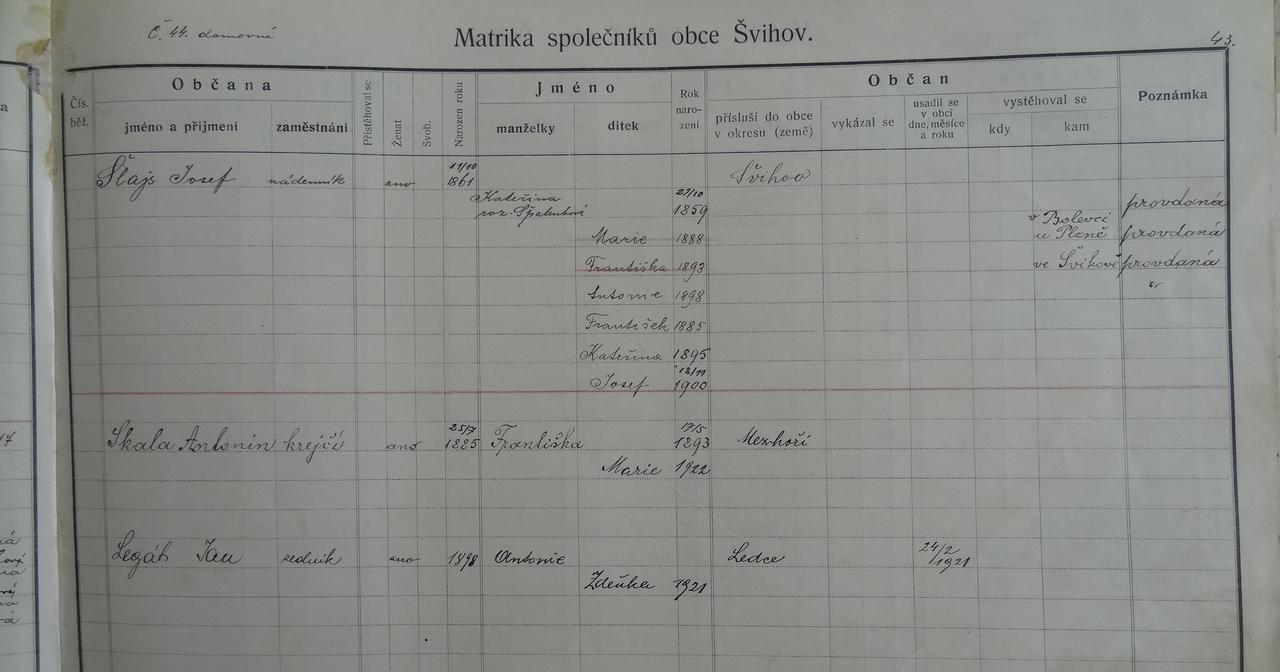 Č. 44. domovné
Matrika společníků obce Švihov.
43.
Čís. běž.
Občana
jméno a přijmení
zaměstnání
Přistěhoval se
Ženat
Svob.
Narozen roku
Jméno
manželky
dítek
Rok naro- zení
Občan
přísluší do obce v okresu (země)
vykázal se
usadil se v obci dne, měsíce a roku
vystěhoval se
kdy
kam
Poznámka
Šlajs Josef nádenník ano 11/10 1861 Švihov
Kateřina roz. Špatenková 27/10 1859 provdaná
Marie 1888 v Bolevci u Plzně provdaná
Františka 1893 ve Švihově provdaná
Antonie 1898 "
František 1885
Kateřina 1895
Josef 13/11 1900
Skala Antonín krejčí ano 25/7 1885 Františka 17/5 1893 Mezhoří
Marie 1922
Legát Jan zedník ano 1898 Antonie Ledce 24/2 1921
Zdeňka 1921